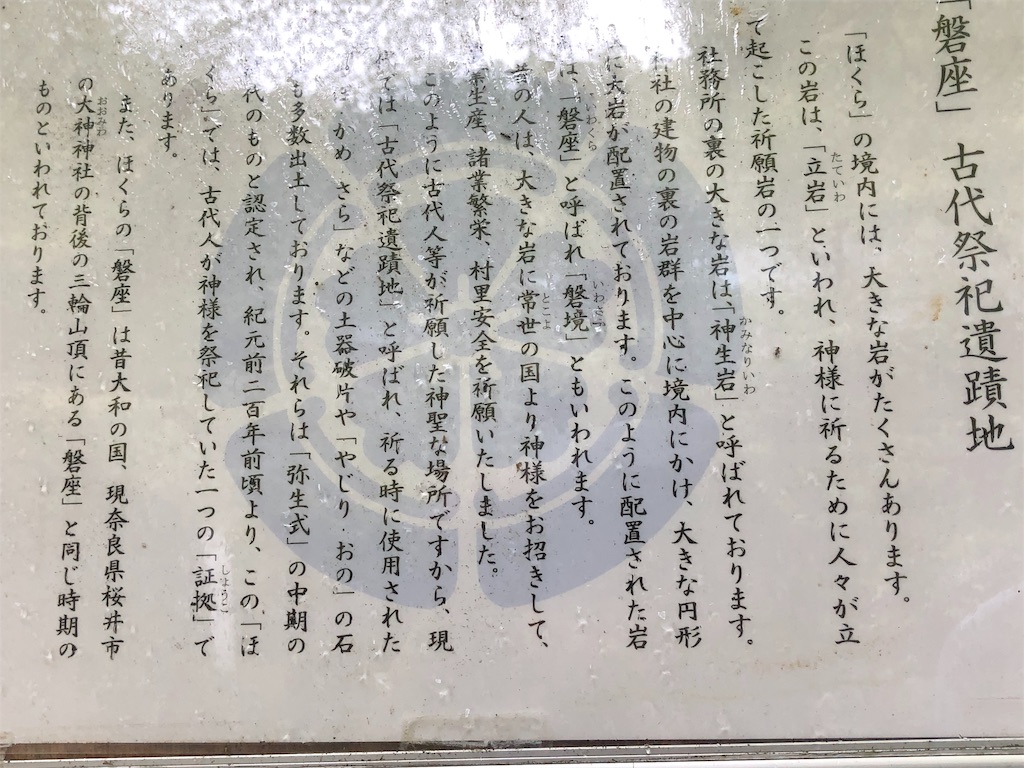 「磐座」古代祭祀遺蹟地
「ほくら」の境内には、大きな岩がたくさんあります。
この岩は、「立岩」といわれ、神様に祈るために人々が立
て起こした祈願岩の一つです。
社務所の裏の大きな岩は、「神生岩」と呼ばれております。
社の建物の裏の岩群を中心に境内にかけ、大きな円形
に大岩が配置されております。このように配置された岩
は、「磐座」と呼ばれ「磐境」ともいわれます。
昔の人は、大きな岩に常世の国より神様をお招きして、
生産、諸業繁栄、村里安全を祈願いたしました。
このように古代人等が祈願した神聖な場所ですから、現
代では「古代祭祀遺蹟地」と呼ばれ、祈る時に使用された
かめ さら」などの土器破片や「やじり おの」の石
も多数出土しております。それらは「弥生式」の中期の
代のものと認定され、紀元前二百年前頃より、この「ほ
くら」では、古代人が神様を祭祀していた一つの「証拠」で
あります。
また、ほくらの「磐座」は昔大和の国、現奈良県桜井市
の大神神社の背後の三輪山頂にある「磐座」と同じ時期の
ものといわれております。